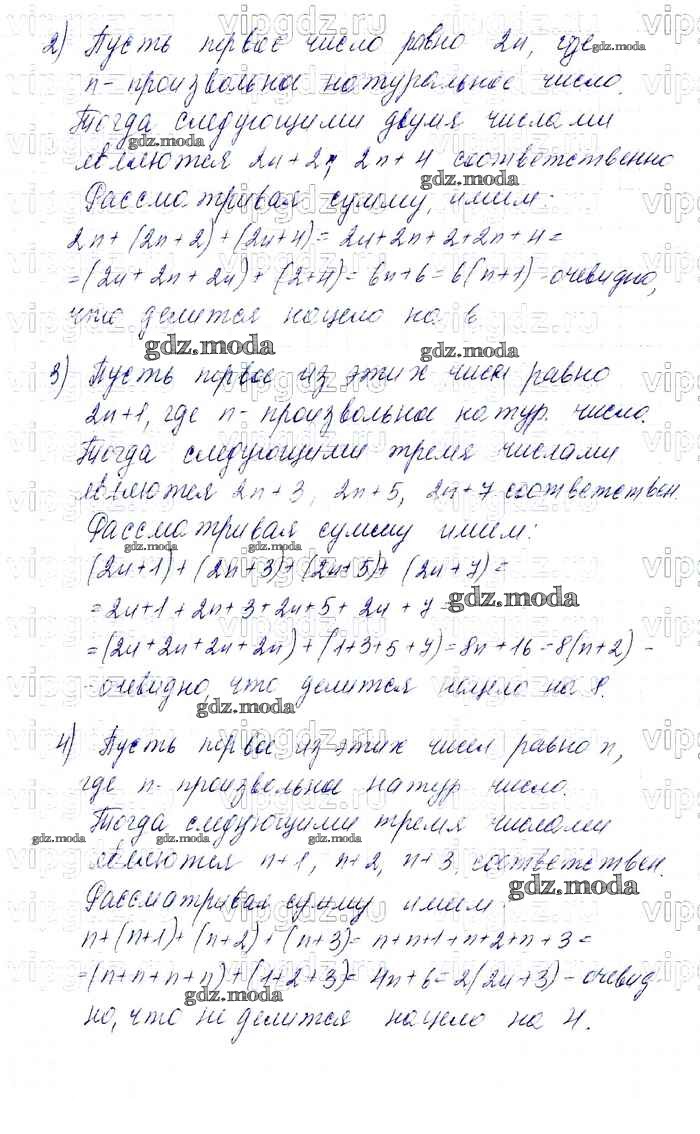 2) Пусть первое число равно 2n, где
n - произвольное натуральное число.
Тогда следующими двумя числами
являются 2n+2, 2n+4 соответственно
Рассматривая сумму, имеем:
2n+(2n+2)+(2n+4)= 2n+2n+2+2n+4=
=(2n+2n+2n)+(2+4)= 6n+6=6(n+1) - очевидно,
что делится нацело на 6
3) Пусть первое из этих чисел равно
2n+1, где n - произвольное натур. число.
Тогда следующими тремя числами
являются 2n+3, 2n+5, 2n+7 соответствен.
Рассматривая сумму имеем:
(2n+1)+(2n+3)+(2n+5)+(2n+7)=
=2n+1+2n+3+2n+5+2n+7=
=(2n+2n+2n+2n)+(1+3+5+7)=8n+16=8(n+2) -
- очевидно, что делится нацело на 8.
4) Пусть первое из этих чисел равно n,
где n - произвольное натур число.
Тогда следующими тремя числами
являются n+1, n+2, n+3 соответствен.
Рассматривая сумму имеем:
n+(n+1)+(n+2)+(n+3)= n+n+1+n+2+n+3=
=(n+n+n+n)+(1+2+3)= 4n+6=2(2n+3) - очевид-
но, что не делится нацело на 4.